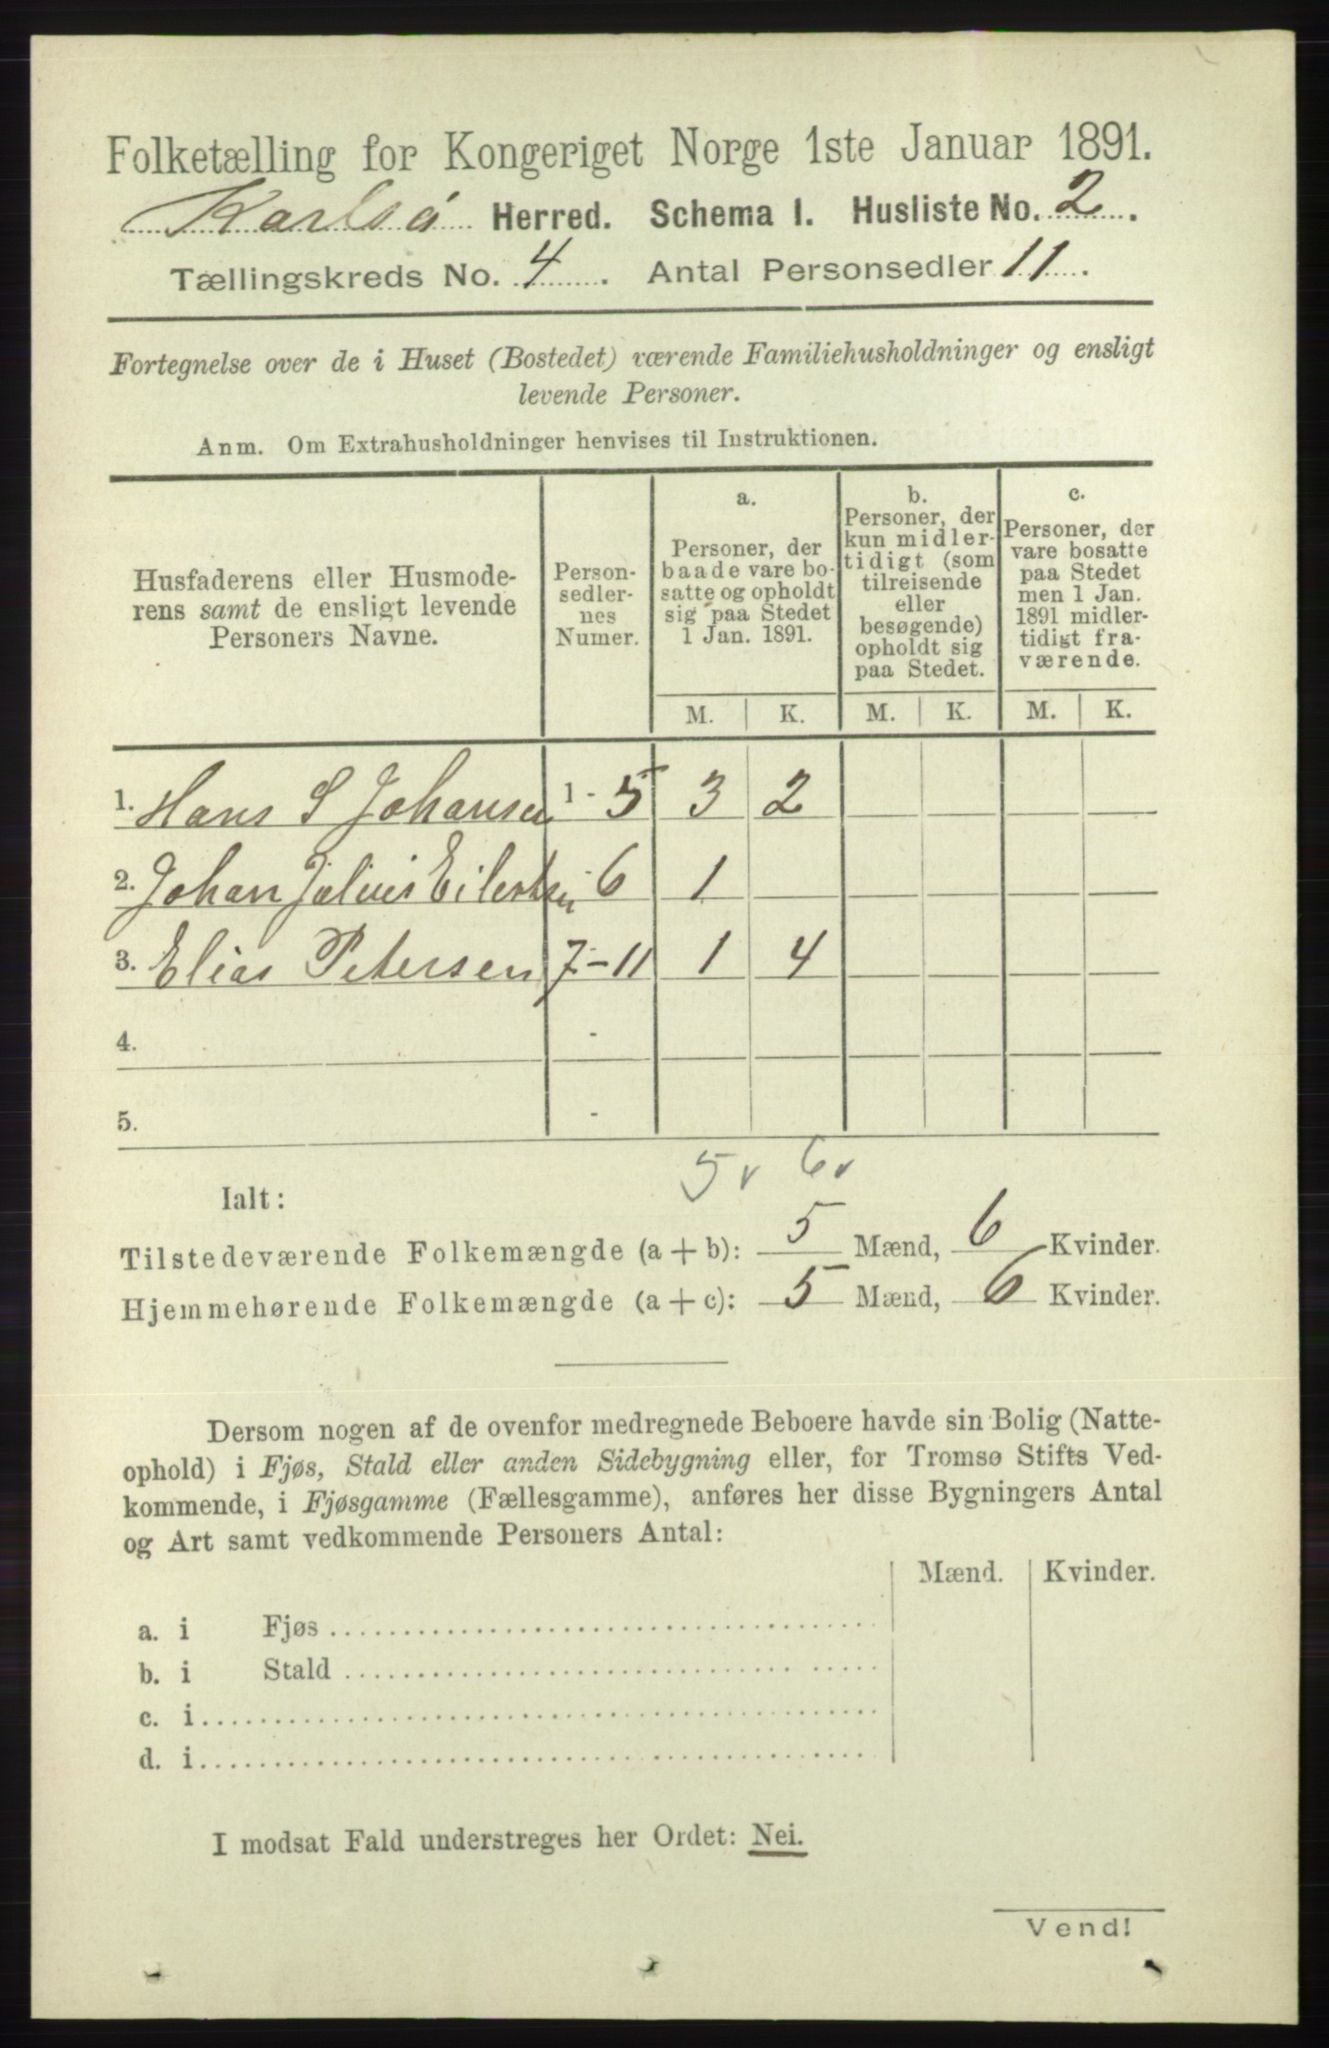 Folketælling for Kongeriget Norge 1ste Januar 1891.
Karlsø Herred. Schema I. Husliste No. 2.
Tællingskreds No. 4. Antal Personsedler 11.
Fortegnelse over de i Huset (Bostedet) værende Familiehusholdninger og ensligt
levende Personer.
Anm. Om Extrahusholdninger henvises til Instruktionen.
Husfaderens eller Husmode-
rens samt de ensligt levende
Personers Navne.
Person-
sedler-
nes
Numer.
a.
Personer, der
baade vare bo-
satte og opholdt
sig paa Stedet
1 Jan. 1891.
b.
Personer, der
kun midler-
tidigt (som
tilreisende
eller
besøgende)
opholdt sig
paa Stedet.
c.
Personer, der
vare bosatte
paa Stedet
men 1 Jan.
1891 midler-
tidigt fra-
værende.
M. K. M. K. M. K.
1. Hans S Johansen 1 - 5 3 2
2. Johan Julius Eilertsen - 6 1
3. Elias Petersen 7 - 11 1 4
4. -
5. -
5 v 6 v
Ialt:
Tilstedeværende Folkemængde (a + b): 5 Mænd, 6 Kvinder.
Hjemmehørende Folkemængde (a + c): 5 Mænd, 6 Kvinder.
Dersom nogen af de ovenfor medregnede Beboere havde sin Bolig (Natte-
ophold) i Fjøs, Stald eller anden Sidebygning eller, for Tromsø Stifts Ved-
kommende, i Fjøsgamme (Fællesgamme), anføres her disse Bygningers Antal
og Art samt vedkommende Personers Antal:
Mænd. Kvinder.
a. i Fjøs
b. i Stald
c. i
d. i
I modsat Fald understreges her Ordet: Nei.
Vend!